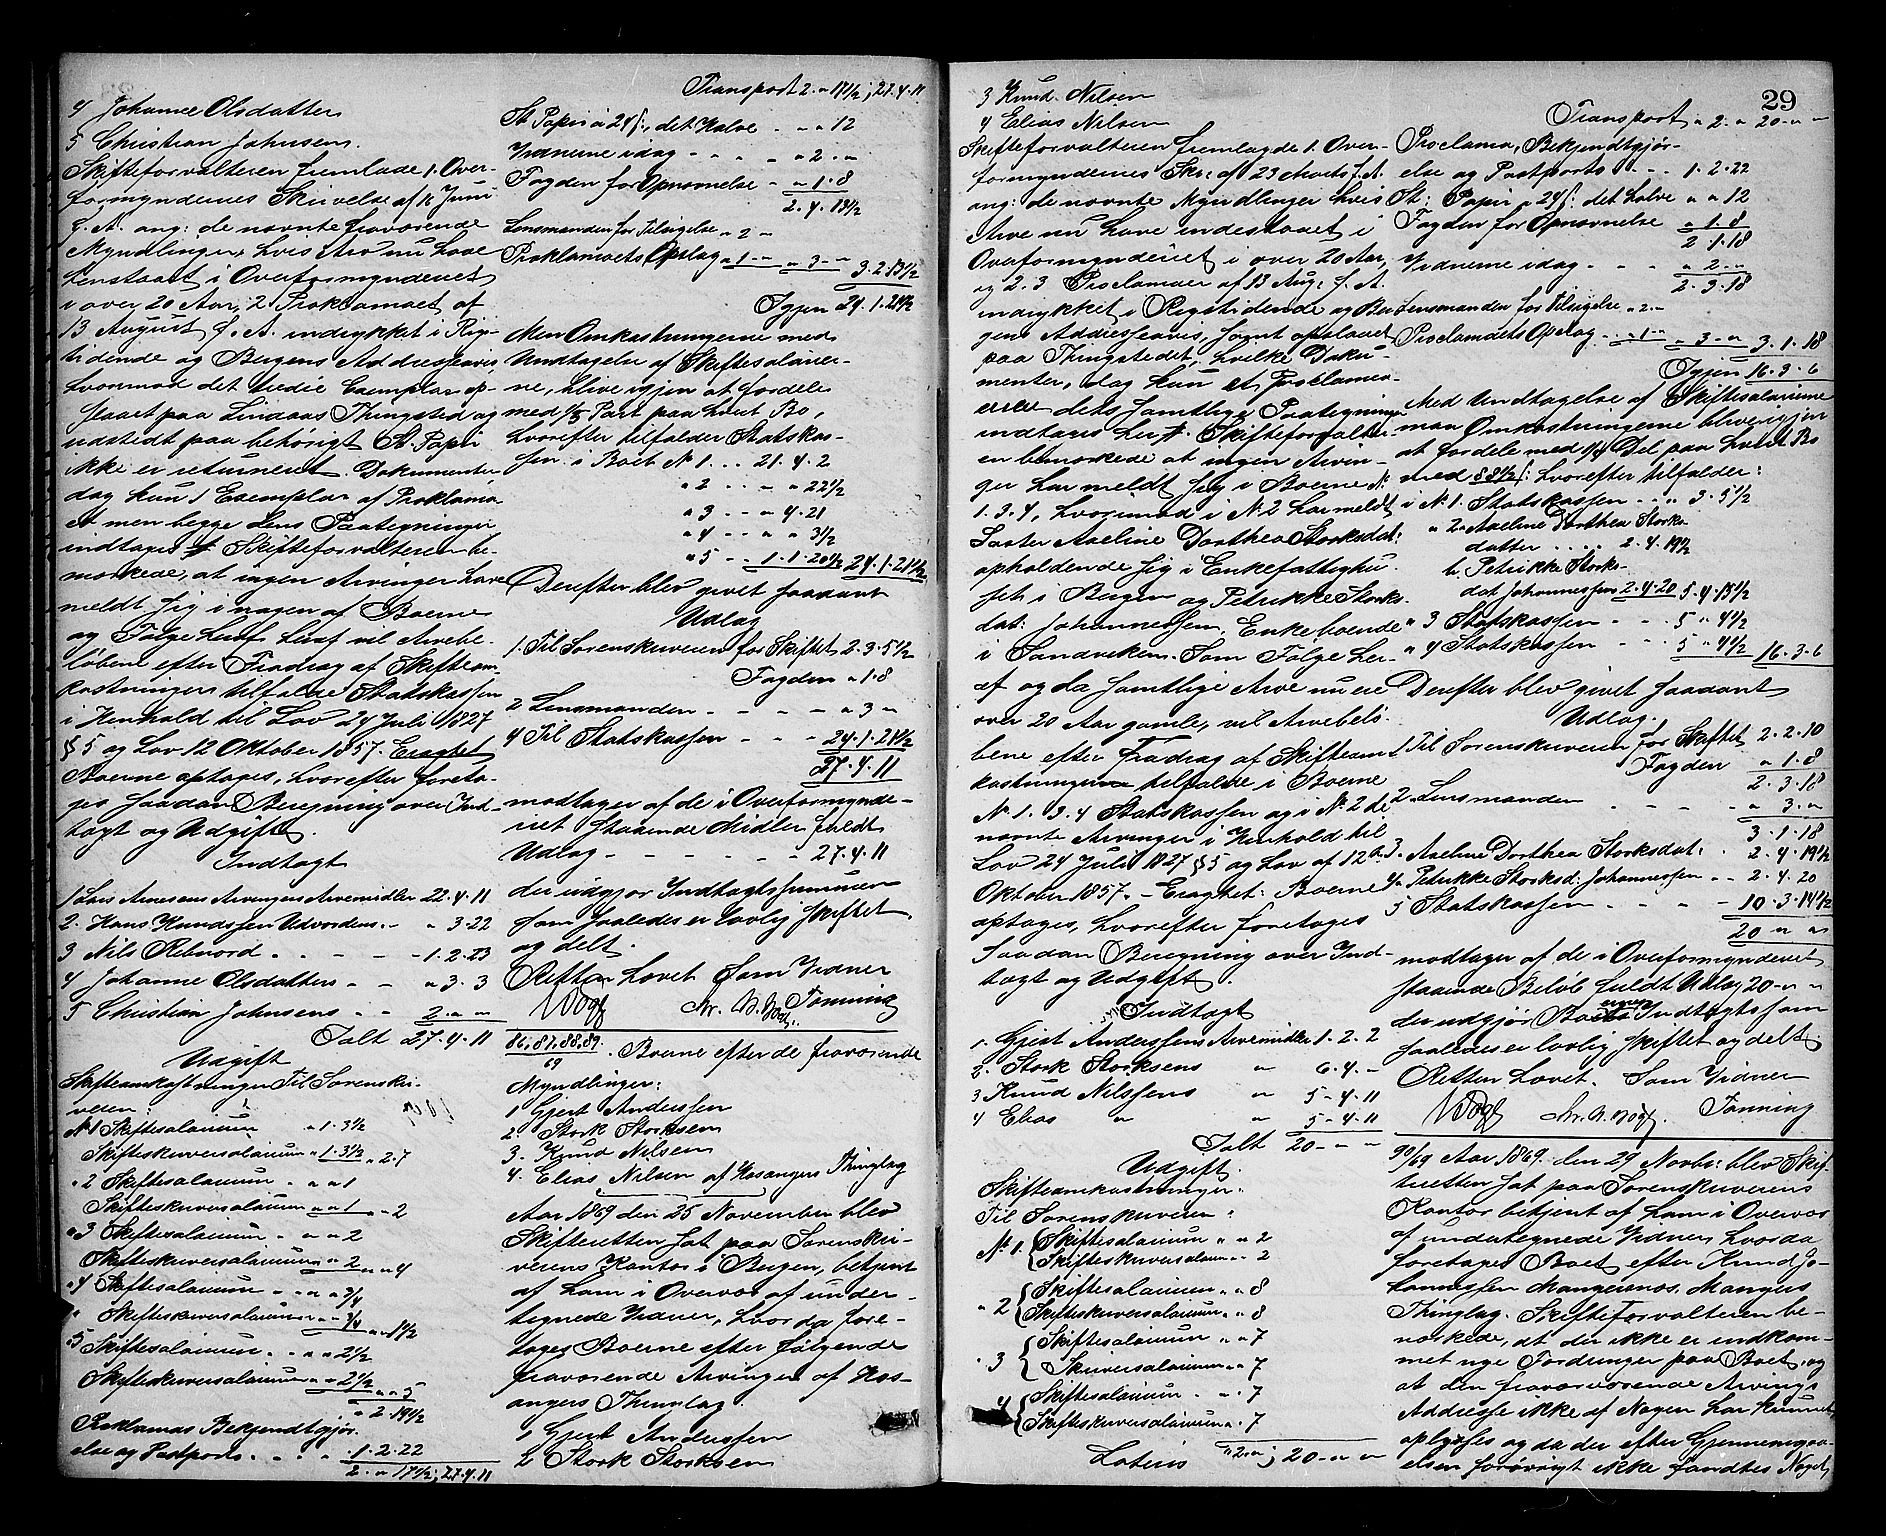 4 Johanne Olsdatter
5 Christian Johnsens.
Skifteforvalteren fremlade 1. Over-
formyndernes Skrivelse af 16 Juni
f. A. ang: de nævnte fraværende
Myndlinger, hvis Arv nu have
henstaaet i Overformynderiet
i over 20 Aar, 2 Proklamaet af
13 August f. A. indrykket i Rigs-
tidende og Bergens Addresseavis,
hvormod det tredie Exemplar op-
slaaet paa Lindaas Thingsted og
udstedt paa behørigt St. Papir
ikke er returneret. Dokumenter,
dog kun 1 Exemplar af Proklama
et men begge dens Paategninger
indtages. Skifteforvalteren be-
mærkede, at ingen Arvinger have
meldt sig i nogen af Boerne
og Følge heraf vil Arvebe-
løbene efter Fradrag af Skifteom-
kostninger tilfalde Statskassen
i Henhold til Lov 24 Juli 1827
§ 5 og Lov 12 Oktober 1857. Eragtet
Boerne optages, hvorefter foreta-
ges saadan Beregning over Ind-
tægt og Udgift.
Indtægt
1 Lars Arnesens Arvingers Arvemidler 22.4.11
2. Hans Knudssen Udvordens - " 3.22
3 Nils Rebnord - - - - 1.2.23
4 Johanne Olsdatters - - " 3.3
5 Christian Johnsens - - 2 - " - "
Ialt 27.4.11
Udgift
Skifteomkostninger Til Sorenskri-
veren:
No 1 Skiftesalarium " 1.3½
Skifteskriversalarium " 1.3½ " 2.7
" 2 Skiftesalarium " " 1
Skifteskriversalarium " " 1 " " 2
" 3 Skiftesalarium " " 2
Skifteskriversalarium " " 2 " " 4
" 4 Skiftesalarium " " ¾
" Skifteskriversalarium " " ¾ " " 1½
" 5 Skiftesalarium " " 2½
Skifteskriversalarium " " 2½ " " 5
" 2.19½
Proklamas Bekjendtgjør-
else og Postporto - - - 1.2.22
2. " 17½; 27.4.11
Transport 2. " 17½; 27.4.11
St. Papir a 24 s:, det Halve - " " 12
Vidnerne idag - - - " 2. "
Fogden for Opnævnelse - " 1.8
2.4.13½
Lensmanden for Tilsigelse " 2 "
Proklamaets Opslag " 1 " " 3 " 3.2.13½
Igjen 24.1.21½
Men Omkostningerne med
Undtagelse af Skiftesalarier-
ne, blive igjen at fordele
med 1/5 Part paa hvert Bo,
hvorefter tilfalder Statskas-
sen: i Boet No 1 . . . 21.4.2
" 2 - - " " 22½
" 3 - - " 4.21
" 4 - - " " 3½
" 5 - - 1.1.20½ 24.1.21½
Derefter blev givet saadant
Udlæg
1. Til Sorenskriveren for Skiftet 2.3.5½
Fogden " 1.8
2 Lensmanden - - - - " 3 "
4 Til Statskassen - - - 24.1.21½
27.4.11
modtager af de i Overformynde-
riet staaende Midler fuldt
Udlæg - - - - - - 27.4.11
der udgjør Indtægtssummer
som saaledes er lovlig skiftet
og delt.
Retten hævet Som Vidner
Vogt Chr. N. Vogt. Tønning
86, 87, 88, 89/69. Boerne efter de fraværende
Myndlinger:
1 Gjert Anderssen
2. Stork Storksen
3. Knud Nilsen
4. Elias Nilsen af Hosangers Thinglag
Aar 1869 den 25 November blev
Skifteretten sat paa Sorenskri-
verens Kontor i Bergen, betjent
af ham i Overvær af under-
tegnede Vidner, hvorda fore-
toges Boerne efter følgende
fraværende Arvinger af Hos-
angers Thinglag.
1, Gjert Anderssen
2 Stork Storksen
29
3 Knud Nilsen
4 Elias Nilsen
Skifteforvalteren fremlagde 1. Over-
formyndernes Skr: af 23 Marts f. A.
ang: de nævnte Myndlinger hvis
Arve nu have indestaaet i
Overformynderiet i over 20 Aar,
og 2. 3 Proclamaer af 13 Aug: f. A.
indrykket i Rigstidende og Ber-
gens Addresseavis, samt opslaaet
paa Thingstedet, hvilke Doku-
menter, dog kun et Proklama
dets samtlige Paategninger
indtages her. Skifteforvalter-
en bemærkede at ingen Arvin-
ger har meldt sig i Boerne No
1. 3. 4, hvorimod i No 2 har meldt
Søster Axeline Dorthea Storksdat:
opholdende sig i Enkefattighu-
set i Bergen og Petrikke Storks-
dat: Johannessen, Enke boende
i Sandviken. Som Følge her-
af og da samtlige Arve nu ere
over 20 Aar gamle, vil Arvebelø-
bene efter Fradrag af Skifteom-
kostningerne tilfalde i Boerne
No 1. 3. 4 Statskassen og i No 2 de
nævnte Arvinger i Henhold til
Lov 24 Juli 1827 § 5 og Lov af 12te
Oktober 1857. - Eragtet: Boerne
optages, hvorefter foretages
saadan Beregning over Ind-
tægt og Udgift.
Indtægt
1. Gjert Anderssens Arvemidler 1.2.2
2. Stork Storksens " 6.4. -
3 Knud Nilssens " 5-4.11
4 Elias " " 5-4.11
Ialt 20 - " - "
Udgift.
Skifteomkostninger:
Til Sorenskriveren:
No 1. Skiftesalarium " " 2
Skifteskriversalarium " " 2
" 2 Skiftesalarium " " 8
Skifteskriversalarium " " 8
" 3 Skiftesalarium " " 7
Skriversalarium " " 7
4 Skiftesalarium " " 7
Skifteskriversalarium " " 7
Lateris " 2 - "; 20 - " - "
Transport " 2 - " 20 - " - "
Proclama, Bekjendtgjør-
else og Postporto - - - 1.2.22
St: Papir a 24 s: det halve " " 12
Fogden for Opnævnelse " 1.8
2.1.18
Vidnerne idag - - - " 2 - "
2.3.18
Lensmanden for Tilsigelse " 2 "
Proclamaets Opslag - " 1 " " 3 " 3.1.18
Igjen 16.3.6
Med Undtagelse af Skiftesalarierne
maa Omkostningerne blive igjen
at fordele med ¼ Del paa hvert Bo
med 88½ s: hvorefter tilfalder:
i No 1. Statskassen - - " 3.5½
" 2 a Axeline Dorthea Storks-
datter . . . . 2.4.19½
b. Petrikke Storks-
dat Johannessen 2.4.20 5.4.15½
" 3 Statskassen - - - 5 " 4½
" 4 Statskassen - - - 5 " 4½ 16.3.6
Derefter blev givet saadant
Udlæg.
1 Til Sorenskriveren for Skiftet 2.2.10
Fogden " 1.8
2.3.18
2. Lensmanden - - - - " 3. "
3.1.18
3. Axeline Dorthea Storksdat: - 2.4.19½
4 Petrikke Storksd: Johannessen - - 2.4.20
5 Statskassen - - - - 10.3.14½
20 " "
modtager af de i Overformynderiet
staaende Beløb fuldt Udlæg 20 - " - "
der udgjør Boernes Indtægt som
saaledes er lovlig skiftet og delt
Retten hævet. Som Vidner
Vogt Chr. N. Vogt. Tønning
90/69 Aar 1869 den 29 Novbr: blev Skif-
teretten sat paa Sorenskriverens
Kontor betjent af ham i Overvær
af undertegnede Vidner, hvorda
foretages Boet efter Knud Jo-
hannessen Mangersnæs, Mangers
Thinglag. Skifteforvalteren be-
mærkede, at der ikke er indkom-
met nye Fordringer paa Boet, og
at den fraværværende Arvings
Addresse ikke af Nogen har kunnet
oplyses og da der efter Gjennemgaa-
elsen forøvrigt ikke fandtes Noget